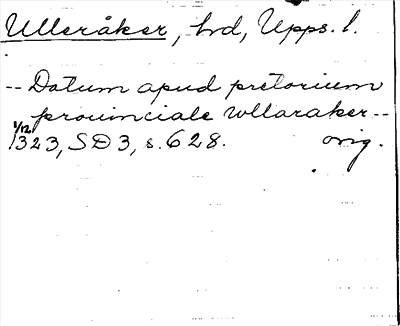 Ulleråker, hd, Upps. l.
-- Datum apud pretorium
prouinciale wllaraker --
1/12 1323, SD 3, s. 628. orig.